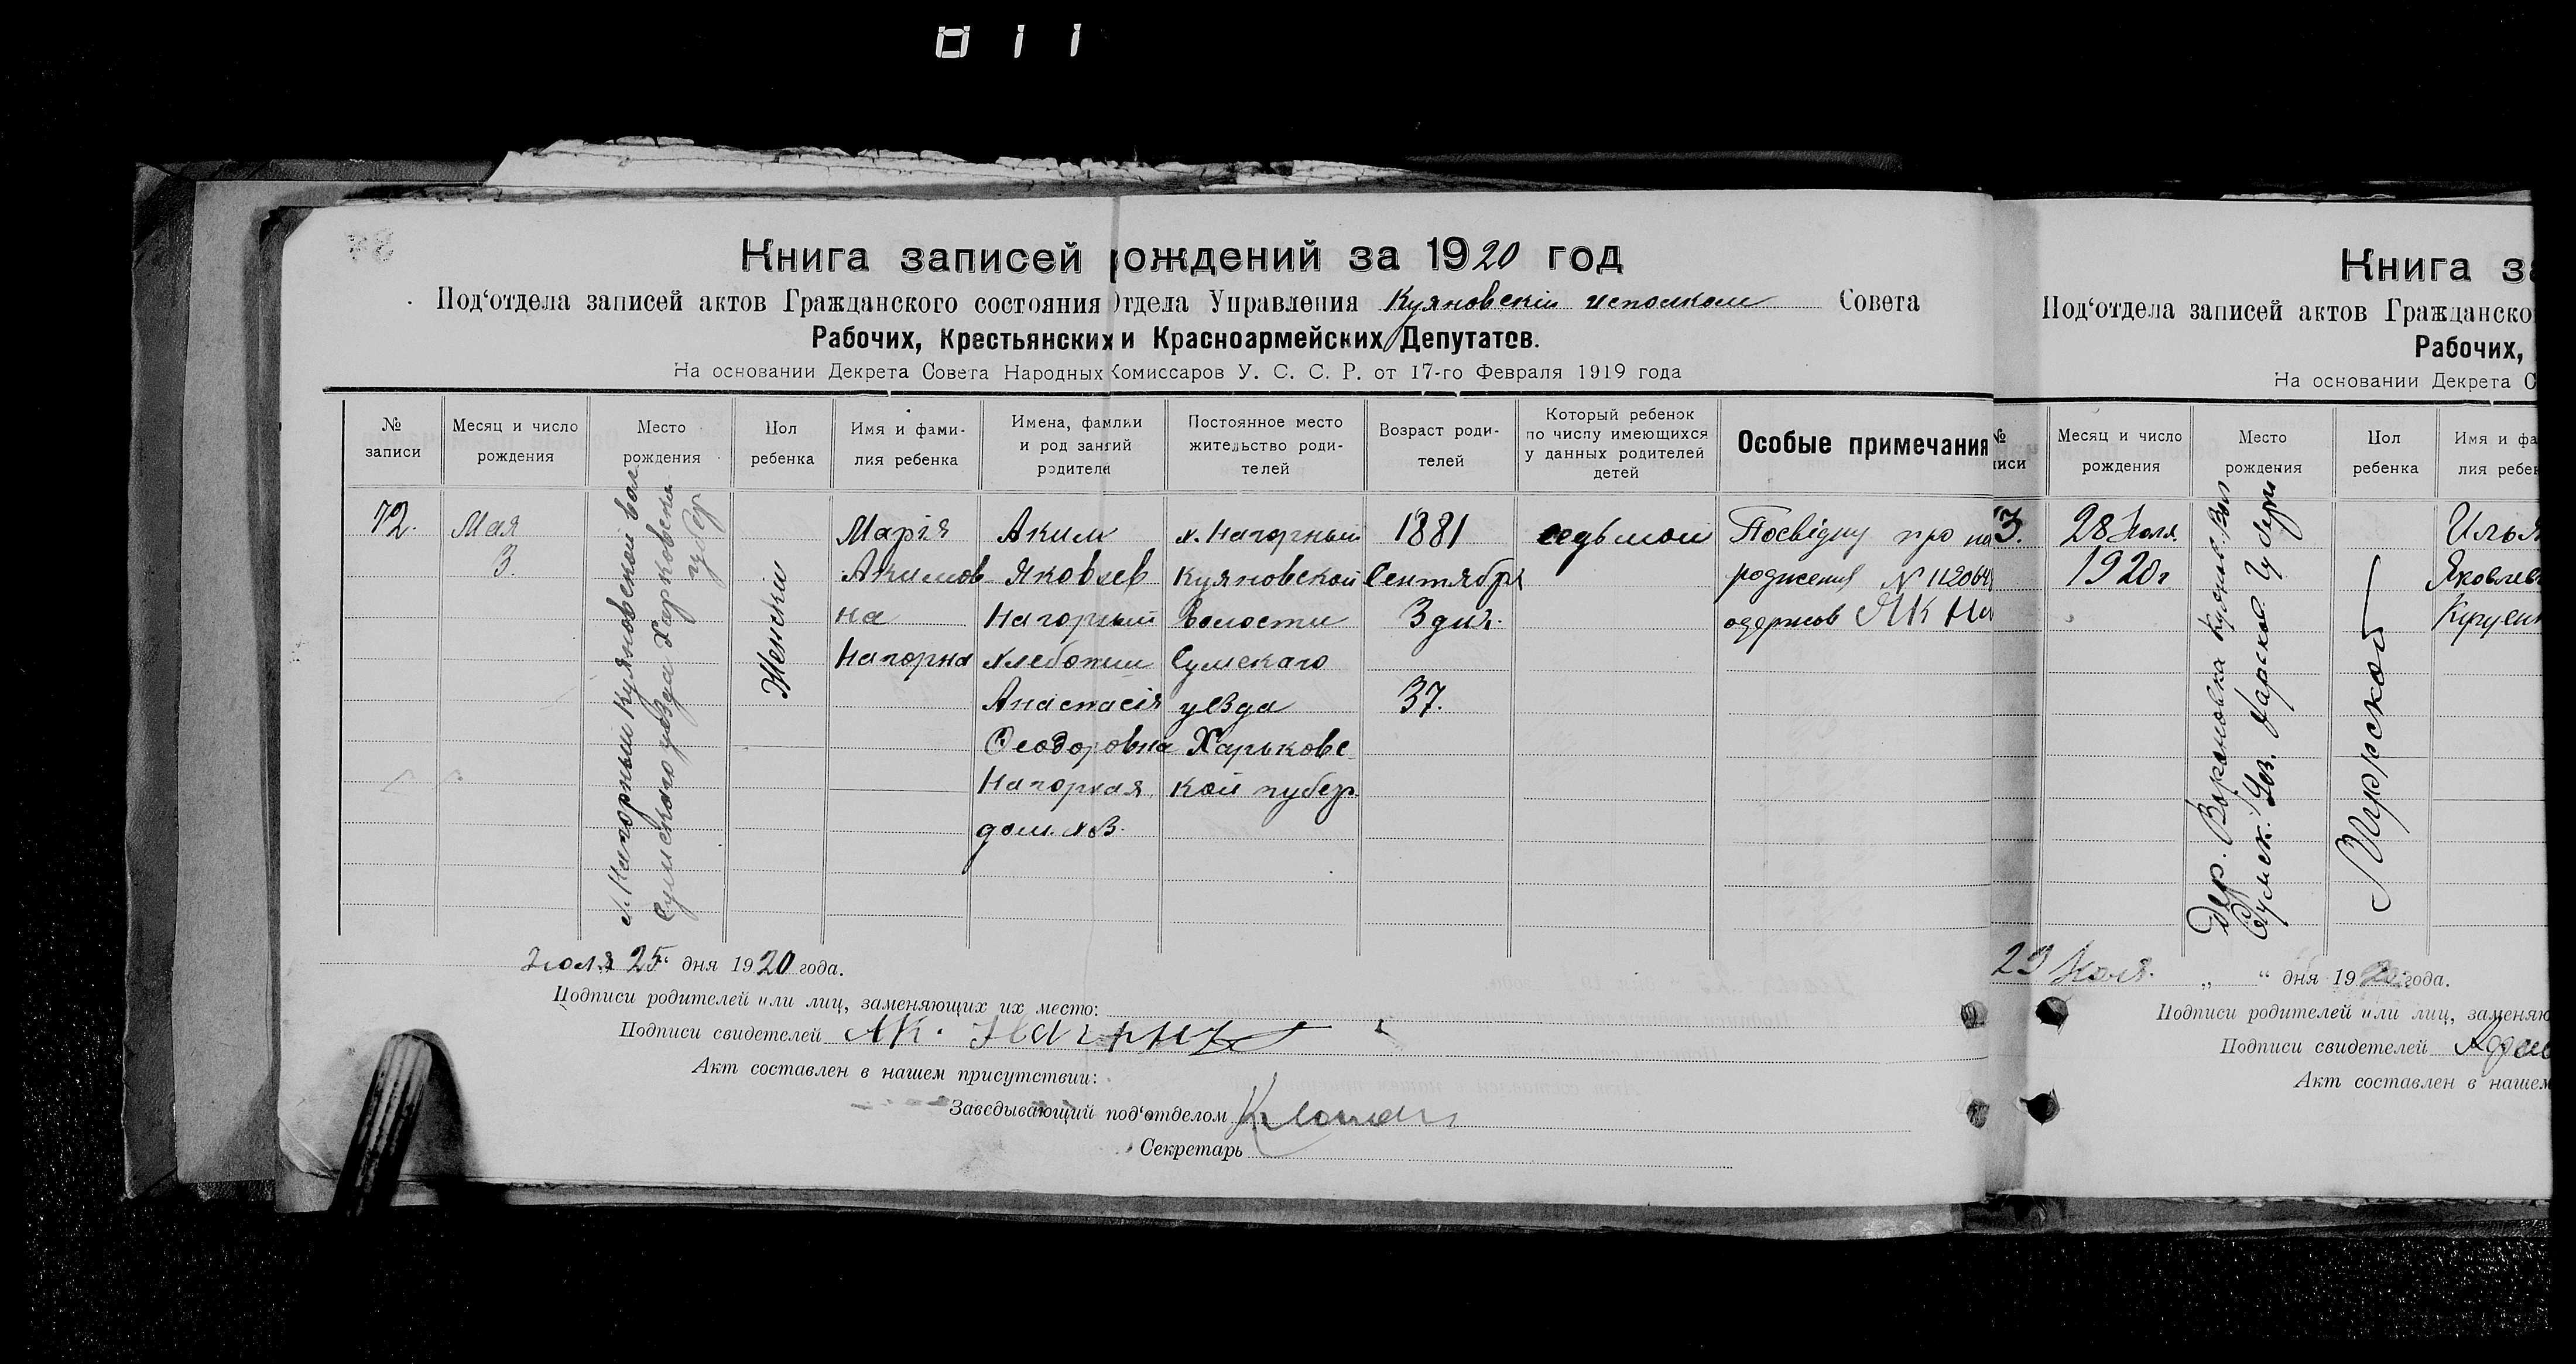 011
Книга записей рождений за 1920 год
Под‘отдела записей актов Гражданского состояния Отдела Управления Куяновскій исполком Совета
Рабочих, Крестьянских и Красноармейских Депутатов.
На основании Декрета Совета Народных Комиссаров У. С. С. Р. от 17-го Февраля 1919 года
№ записи
Месяц и число рождения
Место рождения
Пол ребенка
Имя и фами-
лия ребенка
Имена, фамлии
и род занятий
родителей
Постоянное место
жительство роди-
телей
Возраст роди-
телей
Который ребенок
по числу имеющихся
у данных родителей
детей
Особые примечания
72.
Мая
3.
х. Нагорный Куяновской вол.
Сумского уезда Харковской
губер
Женскій
Марія
Акимов
на
Нагорна
Аким
Яковлев
Нагорный
хлебопаш
Анастасія
Ѳеодоровна
Нагорная
дом. хоз.
х. Нагорный
Куяновской
Волости
Сумскаго
уезда
Харьковс
кой губер.
1881
Сентября
3 дня.
37.
седьмой
Посвідку про на
родження N 112064
одержав ЯК На
Июля 25 дня 1920 года.
Подписи родителей или лиц, заменяющих их место:
Подписи свидетелей АК. Нагрны
Акт составлен в нашем присутствии:
Заведывающий под‘отделом
Секретарь
Книга за
Под‘отдела записей актов Гражданско
Рабочих,
На основании Декрета С
№
иси
Месяц и число
рождения
Место
рождения
Пол
ребенка
Имя и фа
лия ребен
3.
28 Июля.
1920г
Дер. Вороновка
Сумск. Уез. Харьков. Губерн
Мужской
Илья
Яковлев
29 Июля. „ “ дня 1920 года.
Подписи родителей или лиц, заменяю
Подписи свидетелей
Акт составлен в нашем